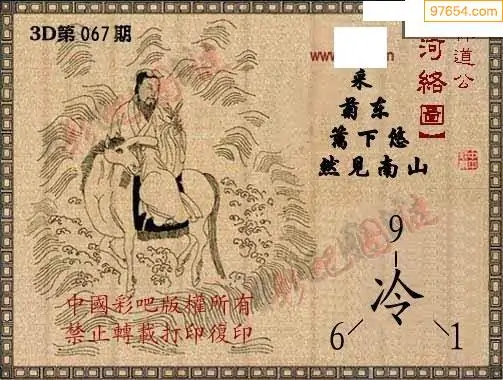 97654.com
3D第067期
www.
道公
河络圖】
采
菊东
篱下悠
然见南山
彩吧图谜
9
冷
6
1
中國彩吧版權所有
禁止轉載打印復印